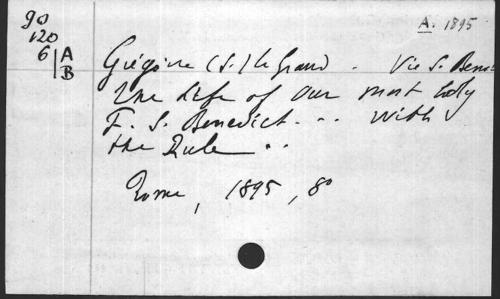 90
120
6 A
B
A. 1895
Grégoire (S.) le Grand. Vie S. Benoi
The Life of our most holy
F. S. Benedict... with
the Rule..
Rome, 1895, 8°